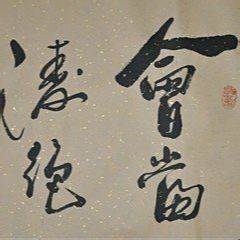 會當
凌絕